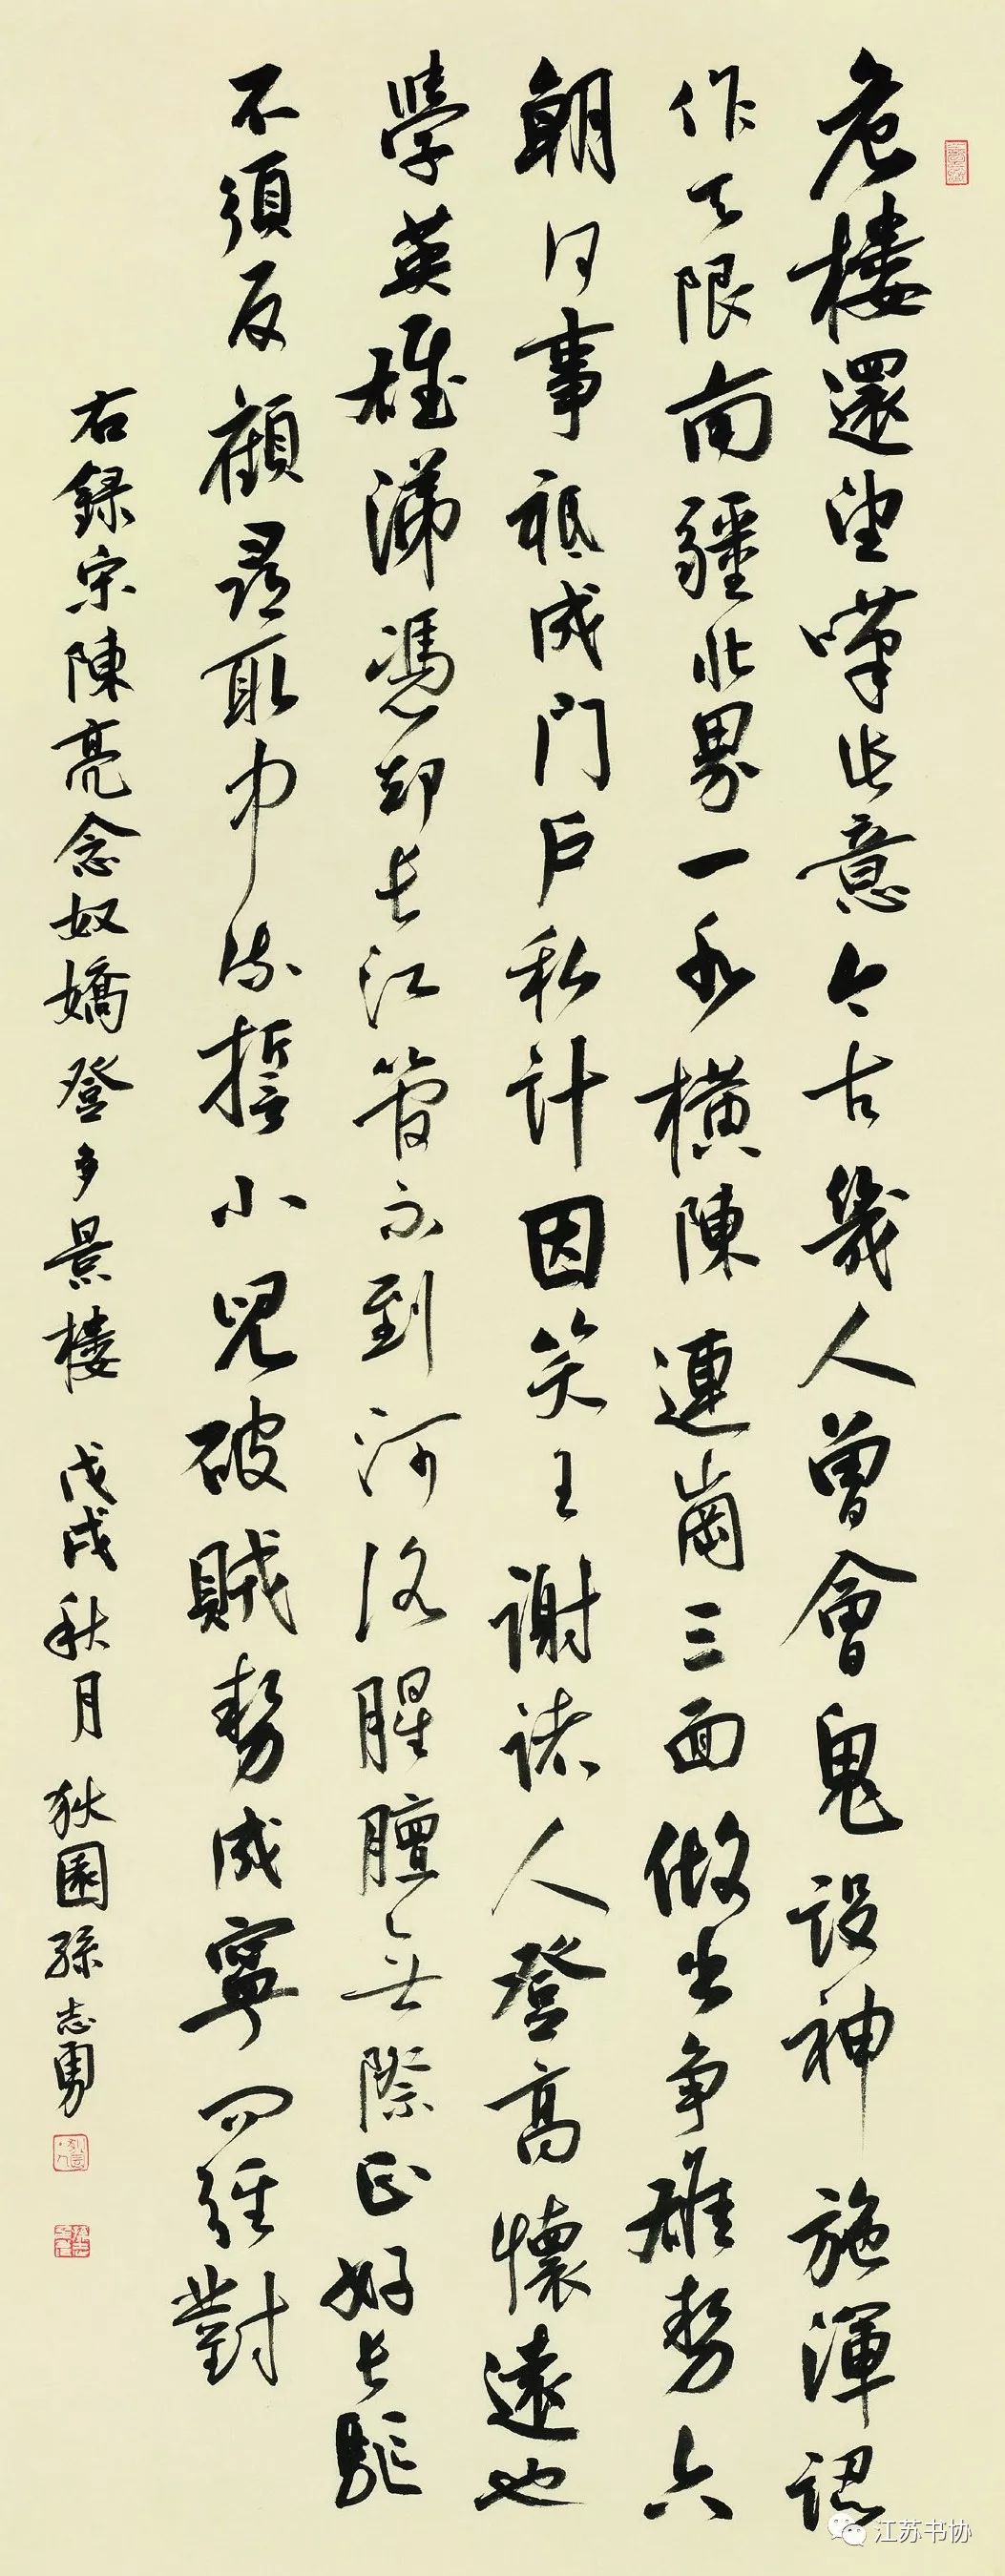 危樓還望嘆此意今古幾人曾會鬼設神施渾認
作天限南疆北界一水橫陳連崗三面做出爭雄勢六
朝何事祇成門戶私計因笑王謝諸人登高懷遠也
學英雄涕憑却長江管不到河洛腥膻無際正好長驅
不須反顧尋取中流誓小兒破賊勢成寧問彊對
右錄宋陳亮念奴嬌登多景樓 戊戌秋月 狄園孫志勇
江苏书协